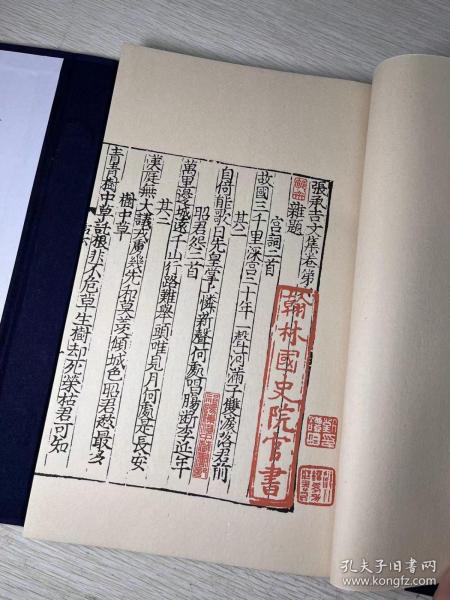 張承吉文集卷第
雜題
宮詞二首
故國三千里深宮二十年一聲河滿子雙淚落君前
其二
自倚能歌日先皇掌上憐新聲何處唱腸斷李延年
昭君怨二首
萬里邊城遠千山行路難舉頭唯見月何處是長安
其二
漢庭無大議戎虜幾先和莫羨傾城色昭君恨最多
樹中草
青青樹中草託根非不危草生樹却死榮枯君可知
翰林國史院官書
孔夫子旧书网
www.kongfz.com